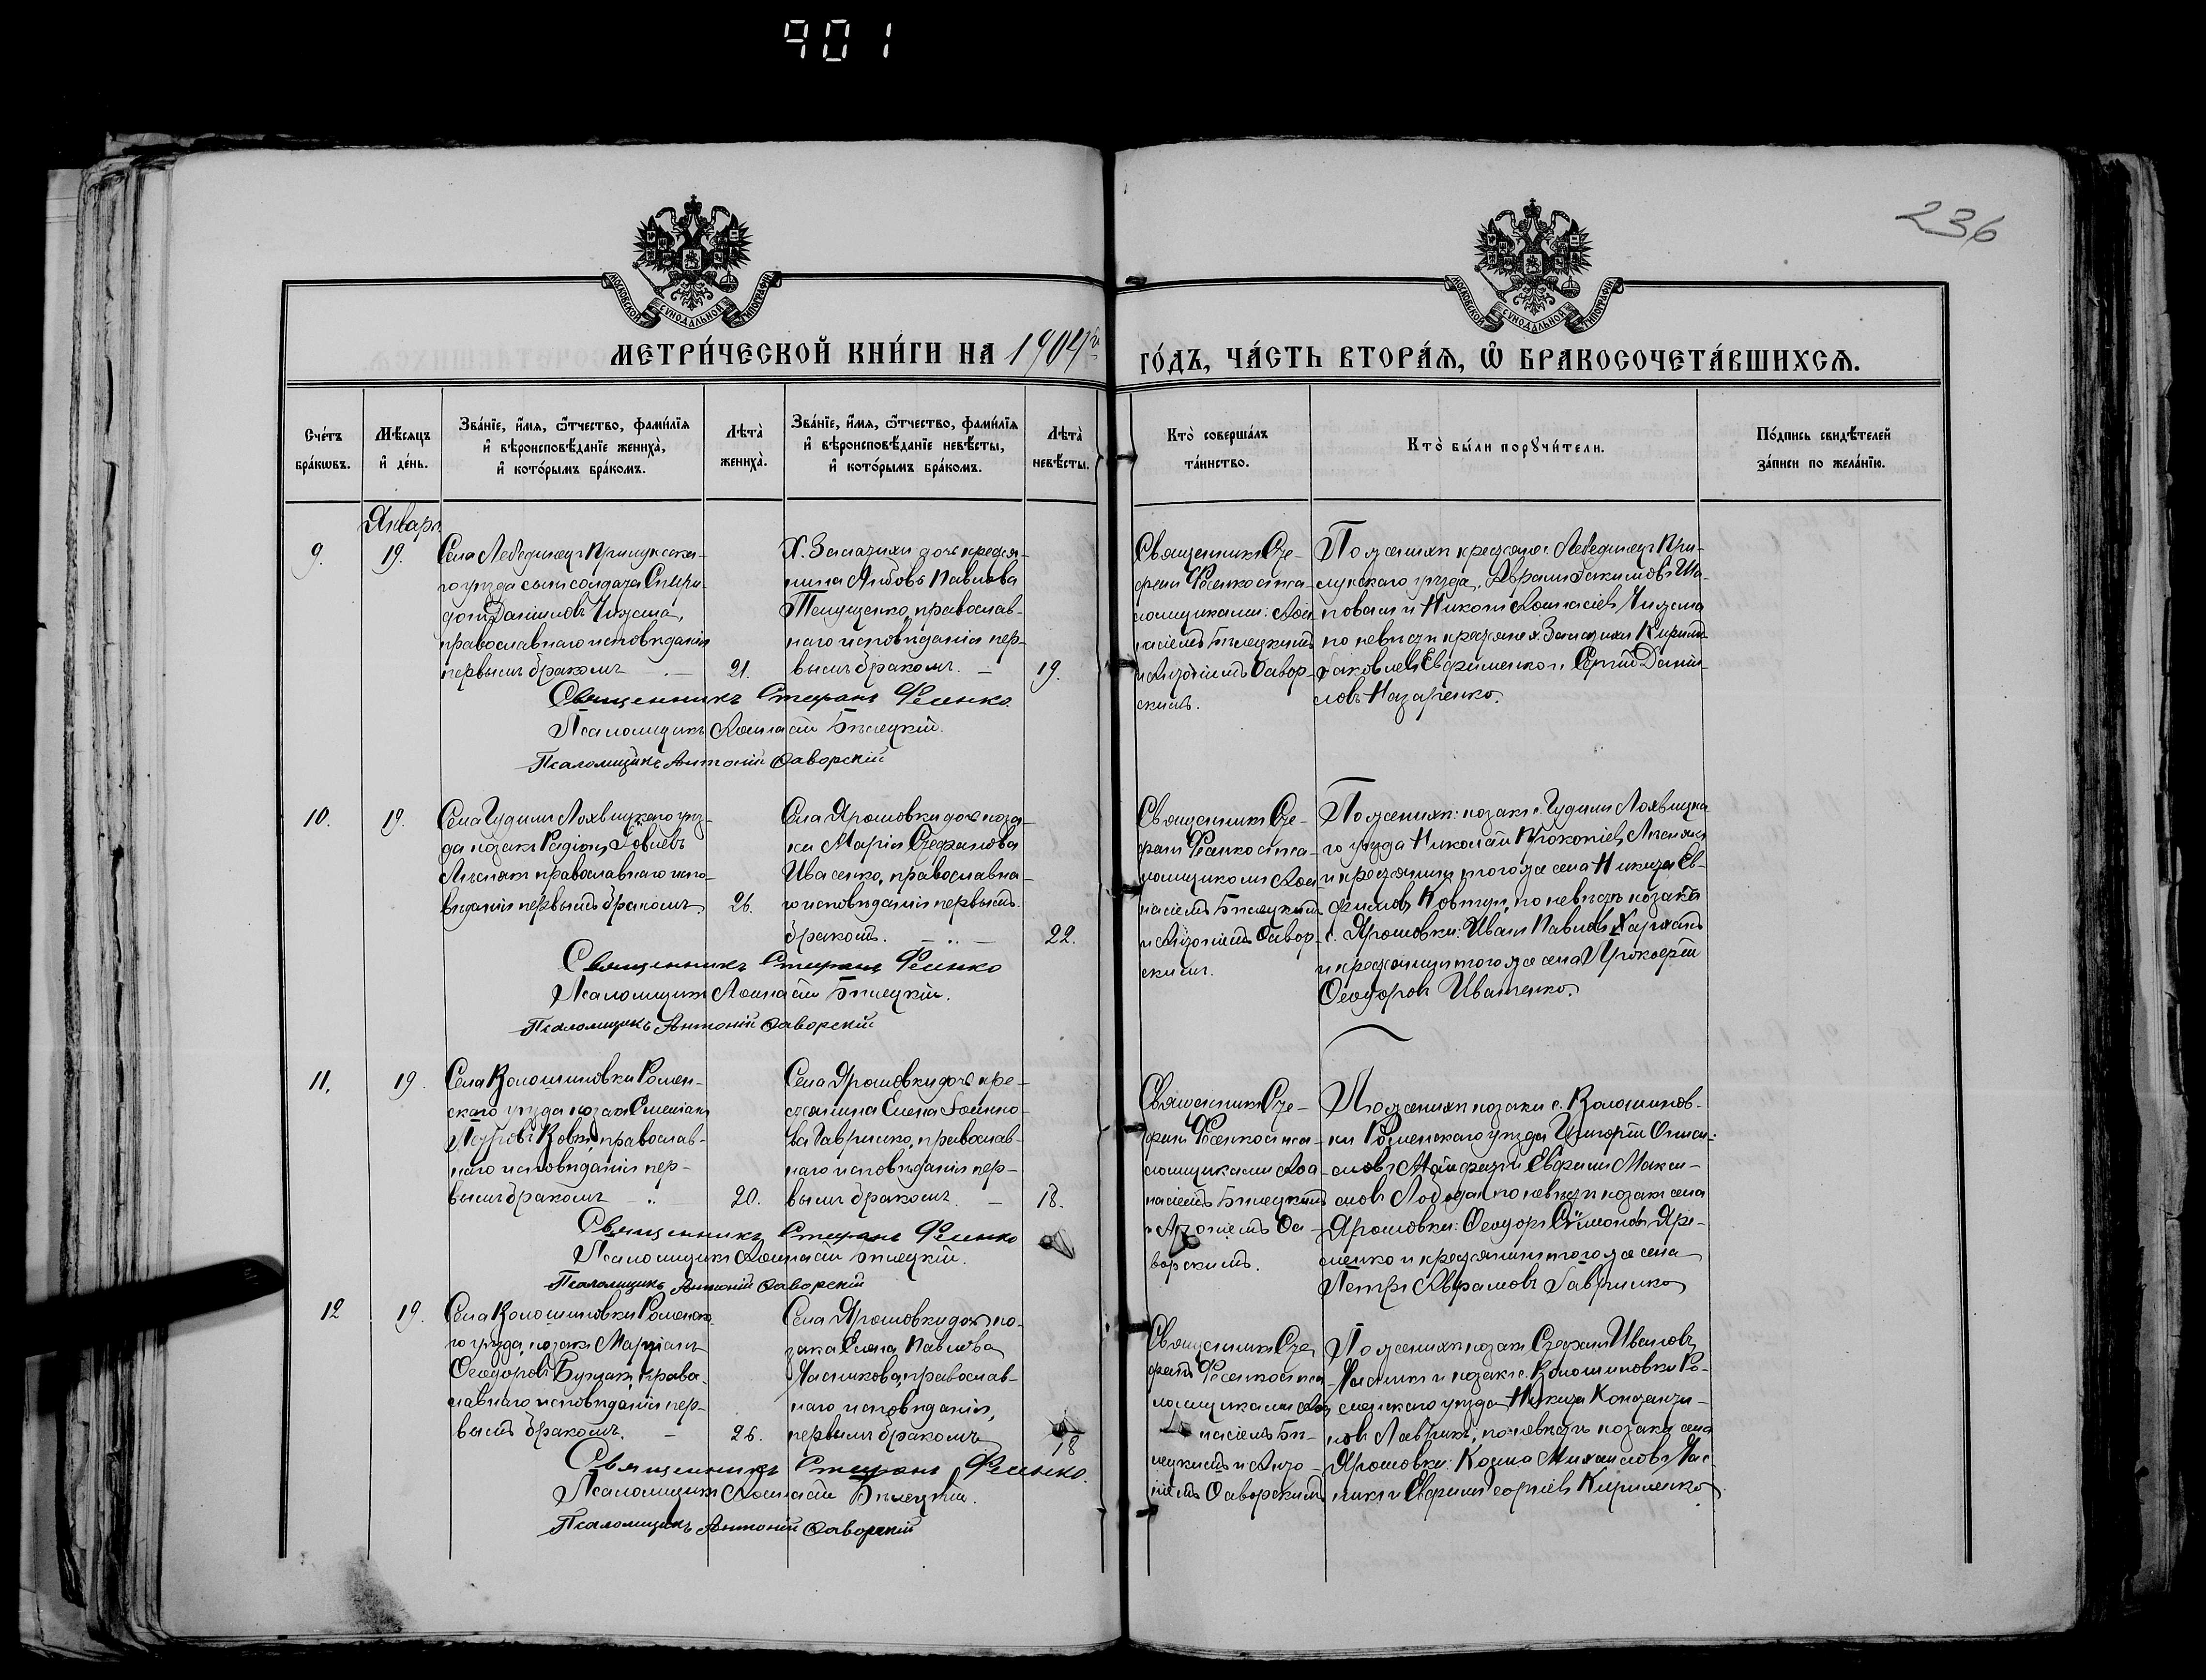 901
236
МОСКОВСКОЙ СѴНОДАЛЬНОЙ ТИПОГРАФІИ
МОСКОВСКОЙ СѴНОДАЛЬНОЙ ТИПОГРАФІИ
МЕТРИ́ЧЕСКОЙ КНИ́ГИ НА 1904й
ГО́ДЪ, ЧА́СТЬ ВТОРА́Я, Ѽ БРАКОСОЧЕТА́ВШИХСЯ.
Сче́тъ
бра́кѡвъ.
Мѣ́сяцъ
и҆ де́нь.
Зва́нїе, и҆́мя, ѻ҆́тчество, фами́лїя
и҆ вѣроисповѣ́данїе жениха̀,
и҆ кото́рымъ бра́комъ.
Лѣта̀
жениха̀.
Зва́нїе, и҆́мя, ѻ҆́тчество, фами́лїя
и҆ вѣроисповѣ́данїе невѣ́сты,
и҆ кото́рымъ бра́комъ.
Лѣта̀
невѣ́сты.
Кто̀ соверша́лъ
та́инство.
Кто̀ бы́ли порꙋчи́тели.
По́дпись свидѣ́телей
за́писи по жела́нїю.
Январь
9.
19.
Села Лебединецъ Прилукска-
го уѣзда сынъ солдата Спири-
донъ Даниловъ
православнаго исповѣданія
первымъ бракомъ
21.
Х. дочь кресть-
нина Павлова
православ-
наго исповѣданія пер-
вымъ бракомъ. —
19.
Священникъ Сте-
фанъ Фесенко съ пса-
ломщиками: Аѳа-
насіемъ Бѣлецкимъ
и Антоніемъ Ѳавор-
скимъ.
По женихѣ крестьяне с. Лебединецъ При-
лукскаго уѣзда,
и
по невѣстѣ крестьяне х. Кирилъ
Яковлевъ Евфименко и Сергій Данiи-
ловъ Назаренко.
Священникъ Стефанъ Фесенко
Псаломщикъ Аѳанасій Бѣлецкій.
Псаломщикъ Антоній Ѳаворскій
10.
19.
Села Гудимы Лохвицкаго уѣз-
да козакъ Родіонъ Іовлевъ
Лѣснякъ православнаго испо-
вѣданія первымъ бракомъ.
26.
Села Ярошовки дочь коза-
ка Марія Стефанова
Иваненко, православна-
го исповѣданія первымъ
бракомъ. —
22.
Священникъ Сте-
фанъ Фесенко съ пса-
ломщиками Аѳа-
насіемъ Бѣлецкимъ
и Антоніемъ Ѳавор-
скимъ.
По женихѣ: козакъ с. Гудимы Лохвицка
го уѣзда Николай Прокопіевъ Лѣснякъ
и крестьянинъ того же села Никита Ев-
фимовъ Ковтунъ, по невѣстѣ козакъ
с. Ярошовки: Иванъ Павловъ
и крестьянинъ того же села Прокофій
Ѳеодоровъ Иваненко.
Священникъ Стефанъ Фесенко
Псаломщикъ Аѳанасій Бѣлецкій.
Псаломщикъ Антоній Ѳаворскій
11.
19.
Села Волошиновки Ромен-
скаго уѣзда козакъ Емеліанъ
Петровъ Вовкъ, православ-
наго исповѣданія пер-
вымъ бракомъ —
20.
Села Ярошовки дочь кре-
стьянина Елена
Гавришко, православ-
наго исповѣданія пер-
вымъ бракомъ. —
18.
Священникъ Сте-
фанъ Фесенко съ пса-
ломщиками Аѳа-
насіемъ Бѣлецкимъ
и Антоніемъ Ѳа-
ворскимъ.
По женихѣ козаки с. Волошинов-
ки Роменскаго уѣзда Григорій
и Евфимъ Макси-
мовъ Лобода, по невѣстѣ козакъ села
Ярошовки: Ѳеодоръ Сѵмеоновъ Яре-
менко и крестьянинъ того же села
Петръ Аврамовъ Гавришко
Священникъ Стефанъ Фесенко
Псаломщикъ Аѳанасій Бѣлецкій.
Псаломщикъ Антоній Ѳаворскій
12
19.
Села Волошиновки Роменска-
го уѣзда, козакъ
Ѳеодоровъ право-
славнаго исповѣданія пер-
вымъ бракомъ. —
26.
Села Ярошовки дочь ко-
зака Елена Павлова
православ-
наго исповѣданія,
первымъ бракомъ
18
Священникъ Сте
фанъ Фесенко съ пса
ломщиками Аѳа
насіемъ Бѣ-
лецкимъ и Анто-
ніемъ Ѳаворскимъ
По женихѣ козакъ Стефанъ Ивановъ
и козакъ с. Волошиновки Ро-
менскаго уѣзда Никита Константи-
новъ Лаврикъ, по невѣстѣ козаки села
Ярошовки: Козма Михаиловъ
и Евфимъ Кириленко
Священникъ Стефанъ Фесенко.
Псаломщикъ Аѳанасій Бѣлецкій.
Псаломщикъ Антоній Ѳаворскій